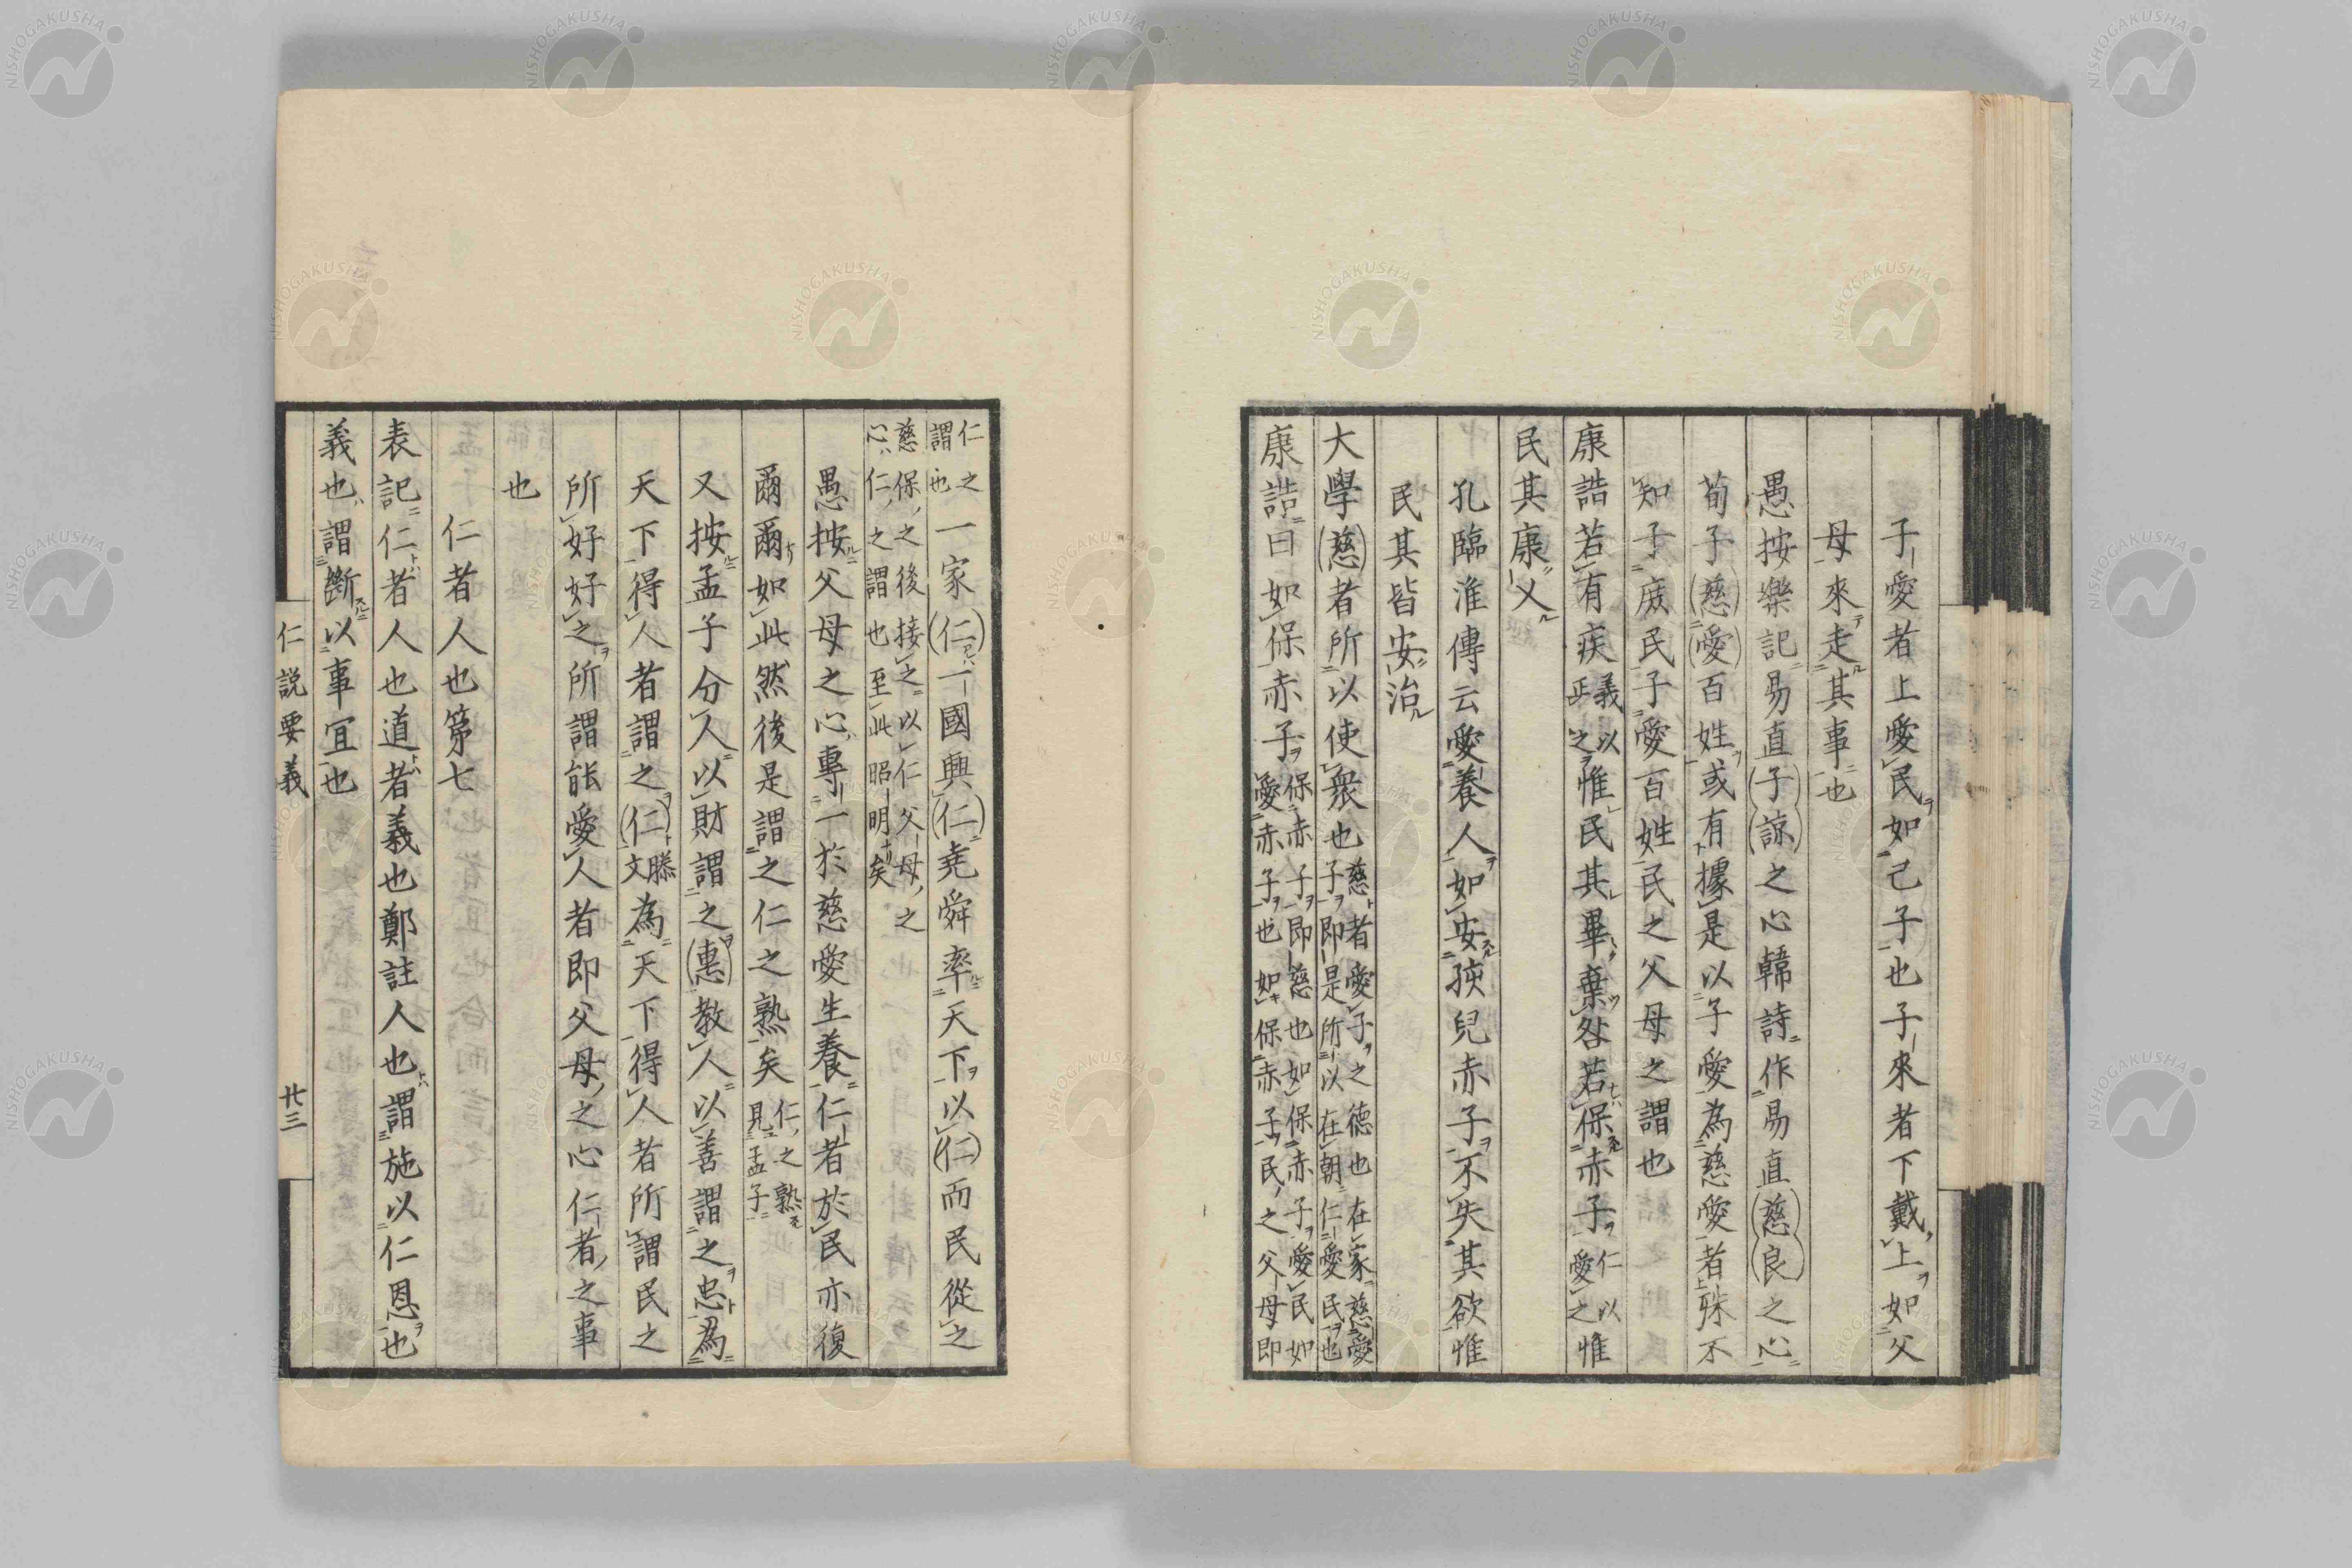 子愛者上愛民如己子也子來者下戴上如父
母來走其事也
愚按樂記易直(子諒)之心韓詩作易直(慈良)之心
荀子(慈)(愛)百姓或有據是以子愛為慈愛者殊不
知子庶民子愛百姓民之父母之謂也
康誥若有疾義以正之惟民其畢棄咎若保赤子仁以愛之惟
民其康乂
孔臨淮傳云愛養人如安孩兒赤子不失其欲惟
民其皆安治
大學(慈)者所以使衆也慈者愛子之德也在家慈愛子即是所以在朝仁愛民也
康誥曰如保赤子保赤子即慈也如保赤子愛民如愛赤子也如保赤子民之父母即
仁之謂也一家(仁)一國興(仁)堯舜率天下以(仁)而民從之
慈保之後接之以仁父母之心仁之謂也至此昭明矣
愚按父母之心專一於慈愛生養仁者於民亦復
爾爾如此然後是謂之仁之熟矣仁之熟見孟子
又按孟子分人以財謂之(惠)教人以善謂之忠為
天下得人者謂之(仁)滕文為天下得人者所謂民之
所好好之所謂能愛人者即父母之心仁者之事
也
仁者人也第七
表記仁者人也道者義也鄭註人也謂施以仁恩也
義也謂斷以事宜也
仁説要義
廿三
NISHOGAKUSHA